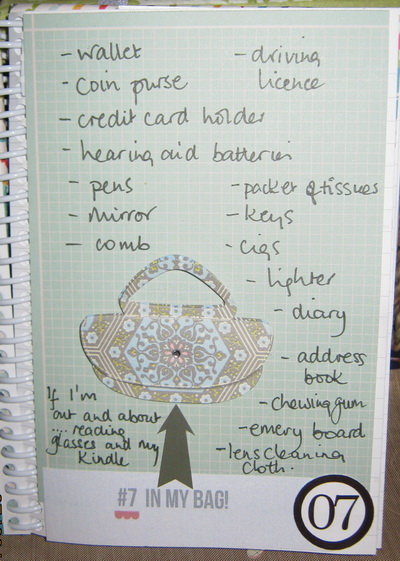 - wallet
- Coin purse
- credit card holder
- hearing aid batteries
- pens
- mirror
- comb
- driving
licence
- packet of tissues
- keys
- cigs
- lighter
- diary
- address
book
- chewing gum
- emery board
- lens cleaning
cloth.
If I'm
out and about
.... reading
glasses and my
Kindle
#7 IN MY BAG!
07